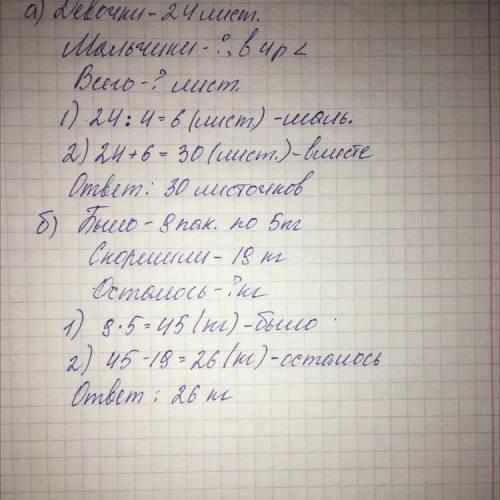 а) Девочки - 24 лист.
Мальчики - ?, в 4 р <
Всего - ? лист.
1) 24 : 4 = 6 (лист) - маль.
2) 24 + 6 = 30 (лист.) - вместе
Ответ: 30 листочков
б) Было - 9 пак. по 5 кг
Скормили - 19 кг
Осталось - ? кг
1) 9 · 5 = 45 (кг) - было
2) 45 - 19 = 26 (кг) - осталось
Ответ: 26 кг